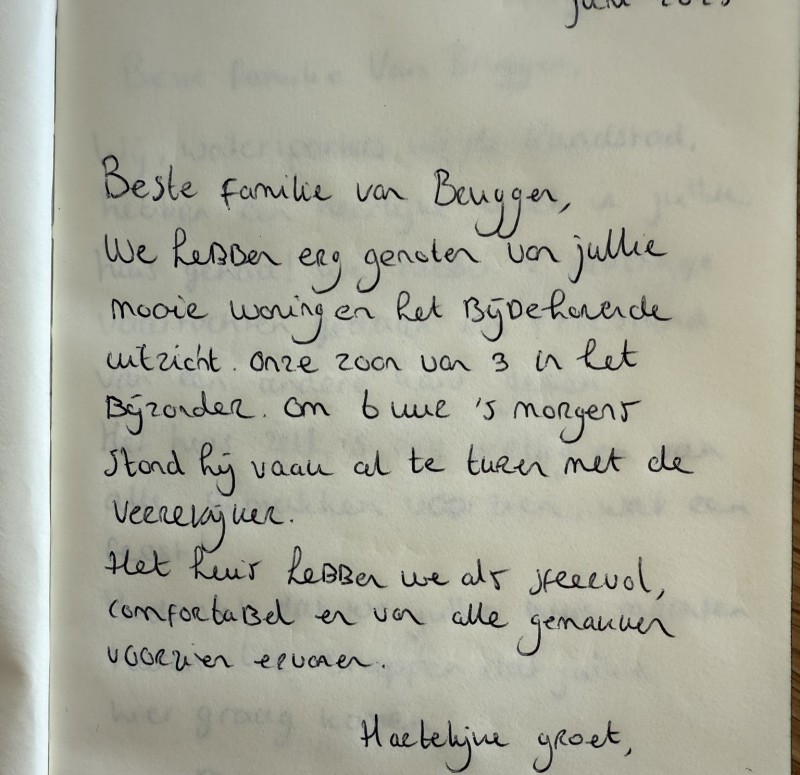 juni 2025
Beste familie van Bruggen,
We hebben erg genoten van jullie
mooie woning en het bijbehorende
uitzicht. Onze zoon van 3 in het
bijzonder. Om 6 uur 's morgens
stond hij vaak al te turen met de
verrekijker.
Het huis hebben we als sfeervol,
comfortabel en van alle gemakken
voorzien ervaren.
Hartelijke groet,